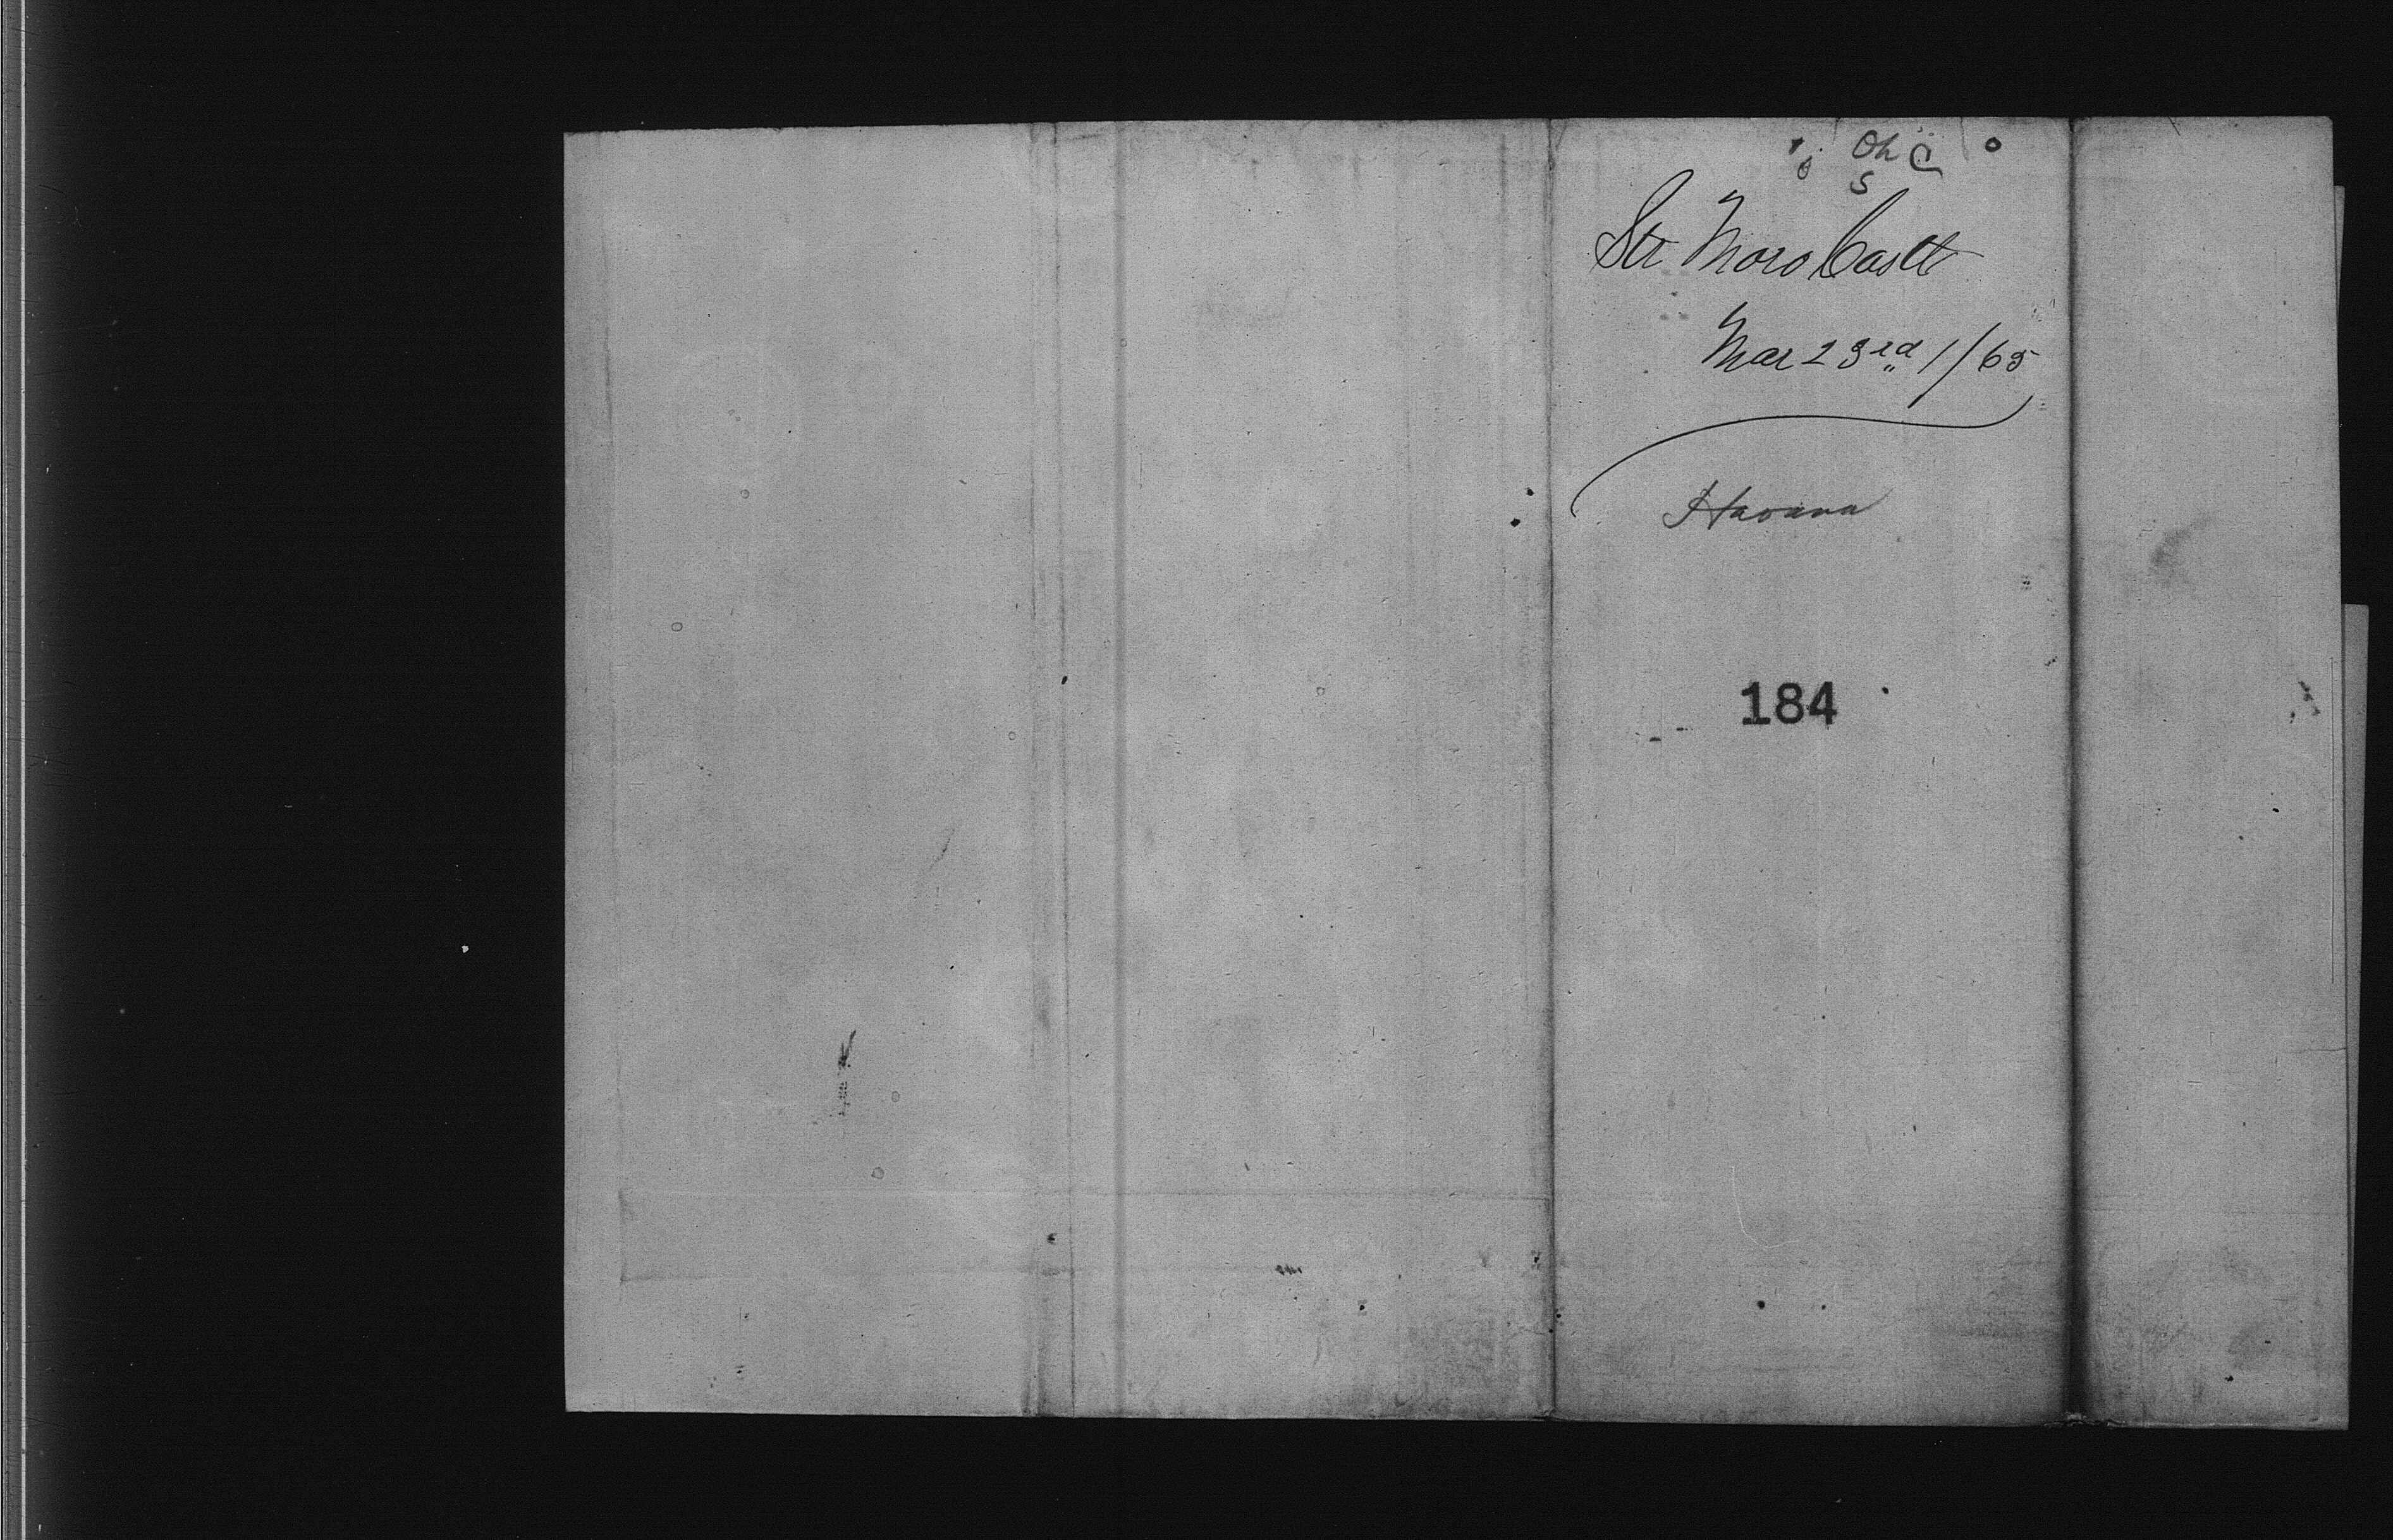 Oh C
S
Str Moro Castle
Mar 23rd 1/65
Havana
184